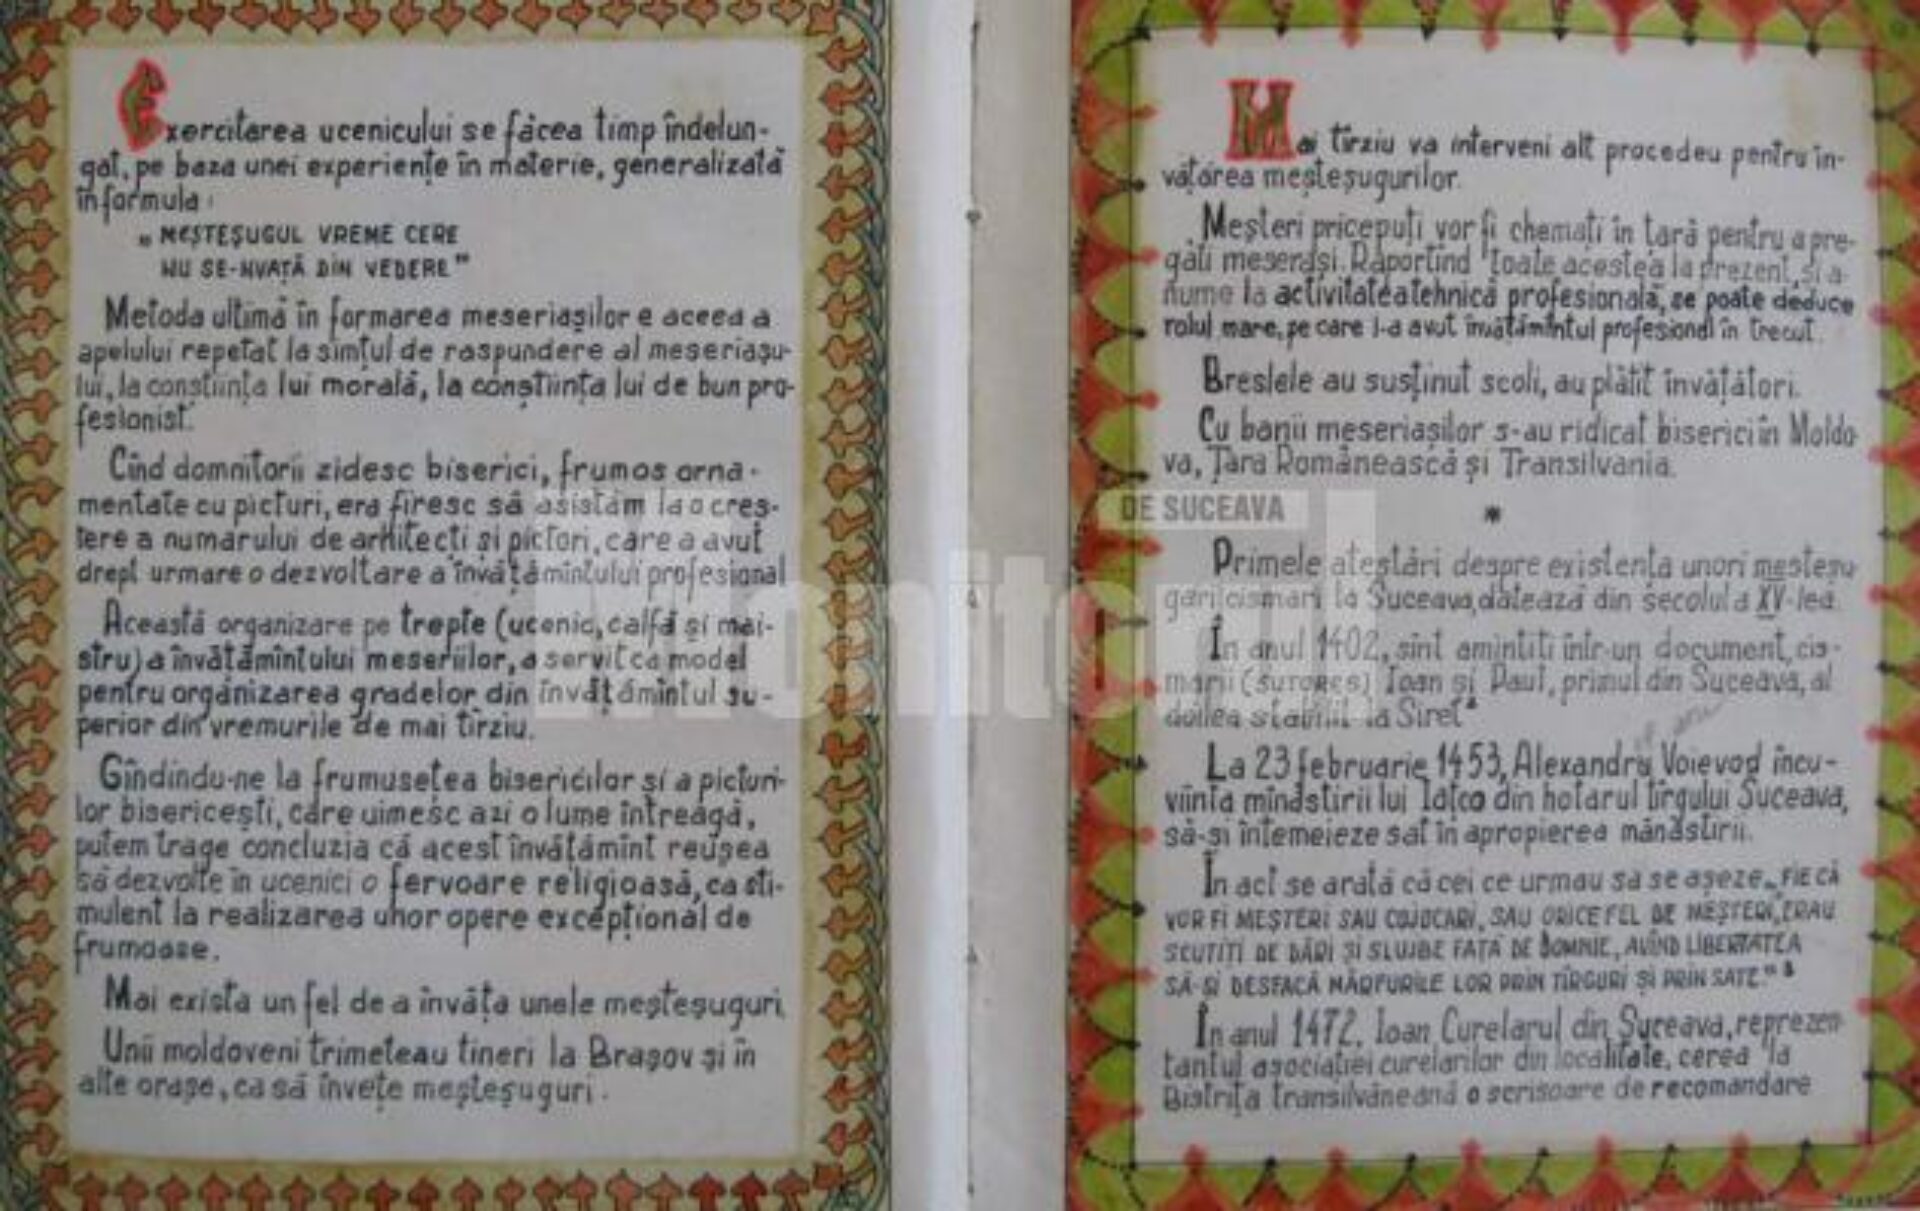 Exercitarea ucenicului se făcea timp îndelun-
gat, pe baza unei experiențe în materie, generalizată
în formula:
„MEȘTEȘUGUL VREME CERE
NU SE-NVAȚĂ DIN VEDERE"
Metoda ultimă în formarea meseriașilor e aceea a
apelului repetat la simțul de raspundere al meseriașu-
lui, la conștiința lui morală, la conștiința lui de bun pro-
fesionist.
Cînd domnitorii zidesc biserici, frumos orna-
mentate cu picturi, era firesc să asistăm la o creș-
tere a numarului de arhitecți și pictori, care a avut
drept urmare o dezvoltare a învățămîntului profesional
Această organizare pe trepte (ucenic, calfă și mai-
stru) a învățămîntului meseriilor, a servit ca model
pentru organizarea gradelor din învățămîntul su-
perior din vremurile de mai tîrziu.
Gîndindu-ne la frumusețea bisericilor și a pictur-
lor bisericești, care uimesc azi o lume întreagă,
putem trage concluzia că acest învățămînt reușea
să dezvolte în ucenici o fervoare religioasă, ca sti-
mulent la realizarea unor opere excepțional de
frumoase.
Mai exista un fel de a învăța unele meșteșuguri.
Unii moldoveni trimeteau tineri la Brașov și în
alte orașe, ca să învețe meșteșuguri.
Mai tîrziu va interveni alt procedeu pentru în-
vățarea meșteșugurilor.
Meșteri pricepuți vor fi chemați în țară pentru a pre-
găti meseriași. Raportînd toate acestea la prezent, și a-
nume la activitatea tehnică profesională, se poate deduce
rolul mare, pe care l-a avut învățămîntul profesional în trecut.
Breslele au susținut scoli, au plătit învățători.
Cu banii meseriașilor s-au ridicat biserici în Moldo-
va, Țara Românească și Transilvania.
*
Primele atestări despre existența unori meșteșu-
gari cismari la Suceava, datează din secolul a XV-lea.
În anul 1402, sînt amintiti într-un document, cis-
marii (sutores) Ioan și Paul, primul din Suceava, al
doilea stabilit la Siret
La 23 februarie 1453, Alexandru Voievod încu-
viința mînăstirii lui Iațco din hotarul tîrgului Suceava,
să-și întemeieze sat în apropierea mănăstirii.
În act se arată că cei ce urmau sa se așeze „FIE CĂ
VOR FI MEȘTERI SAU COJOCARI, SAU ORICE FEL DE MEȘTERI, ERAU
SCUTIȚI DE DĂRI ȘI SLUJBE FAȚĂ DE DOMNIE, AVÎND LIBERTATEA
SĂ-ȘI DESFACĂ MĂRFURILE LOR PRIN TÎRGURI ȘI PRIN SATE."
În anul 1472, Ioan Curelarul din Suceava, reprezen-
tantul asociației curelarilor din localitate, cerea la
Bistrița transilvăneană o scrisoare de recomandare
Monitorul
DE SUCEAVA